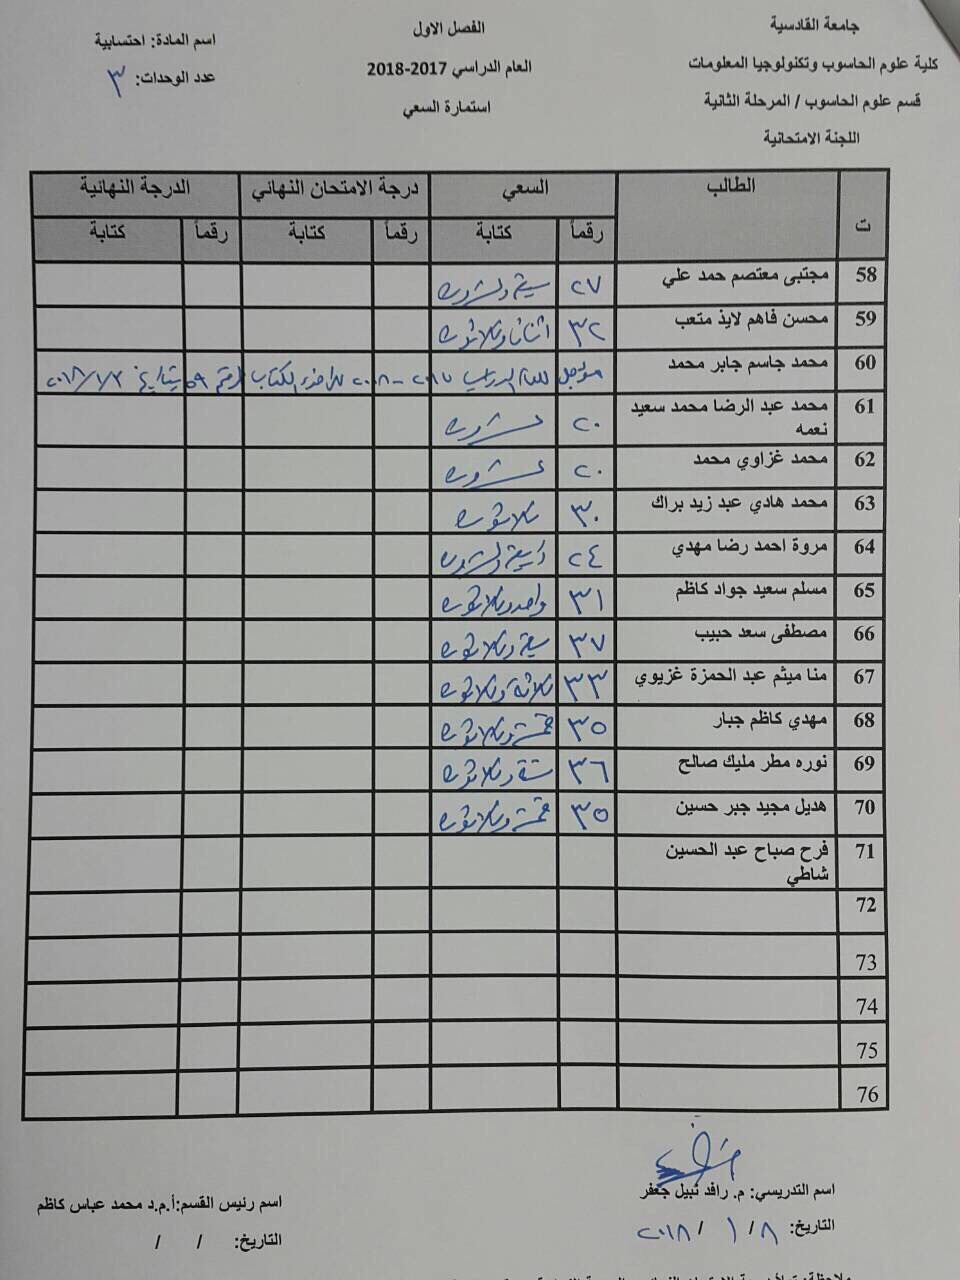 جامعة القادسية
كلية علوم الحاسوب وتكنولوجيا المعلومات
قسم علوم الحاسوب / المرحلة الثانية
اللجنة الامتحانية
الفصل الاول
العام الدراسي 2017-2018
استمارة السعي
اسم المادة: احتسابية
عدد الوحدات: ٣
ت الطالب السعي درجة الامتحان النهائي الدرجة النهائية
رقماً كتابة رقماً كتابة رقماً كتابة
58 مجتبى معتصم حمد علي ٢٧ سبعة وعشرون
59 محسن فاهم لايذ متعب ٣٢ اثنان وثلاثون
60 محمد جاسم جابر محمد مؤجل للعام الدراسي ٢٠١٧-٢٠١٨ الكتاب ٥٩ بتاريخ ٢٠١٨/١/٣
61 محمد عبد الرضا محمد سعيد ٢٠ عشرون
نعمه
62 محمد غزاوي محمد ٢٠ عشرون
63 محمد هادي عبد زيد براك ٣٠ ثلاثون
64 مروة احمد رضا مهدي ٢٤ اربعة وعشرون
65 مسلم سعيد جواد كاظم ٣١ واحد وثلاثون
66 مصطفى سعد حبيب ٣٧ سبعة وثلاثون
67 منا ميثم عبد الحمزة غزيوي ٣٣ ثلاثة وثلاثون
68 مهدي كاظم جبار ٣٥ خمسة وثلاثون
69 نوره مطر مليك صالح ٣٦ ستة وثلاثون
70 هديل مجيد جبر حسين ٣٥ خمسة وثلاثون
71 فرح صباح عبد الحسين
شاطي
72
73
74
75
76
اسم التدريسي: م. رافد نبيل جعفر
التاريخ: ٨ / ١ / ٢٠١٨
اسم رئيس القسم:أ.م.د محمد عباس كاظم
التاريخ: / /